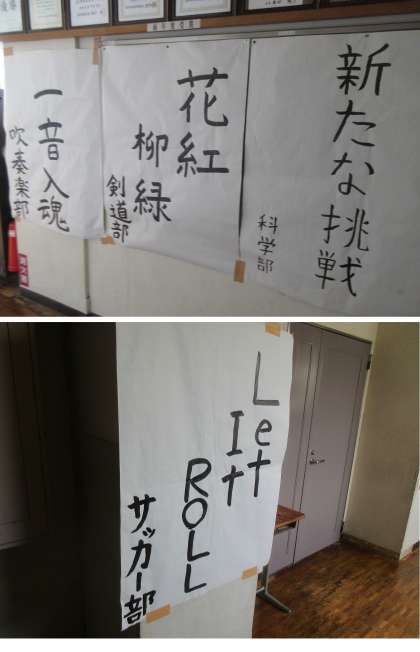 新たな挑戦
科学部
花紅
柳緑
剣道部
一音入魂
吹奏楽部
Let
It
ROLL
サッカー部